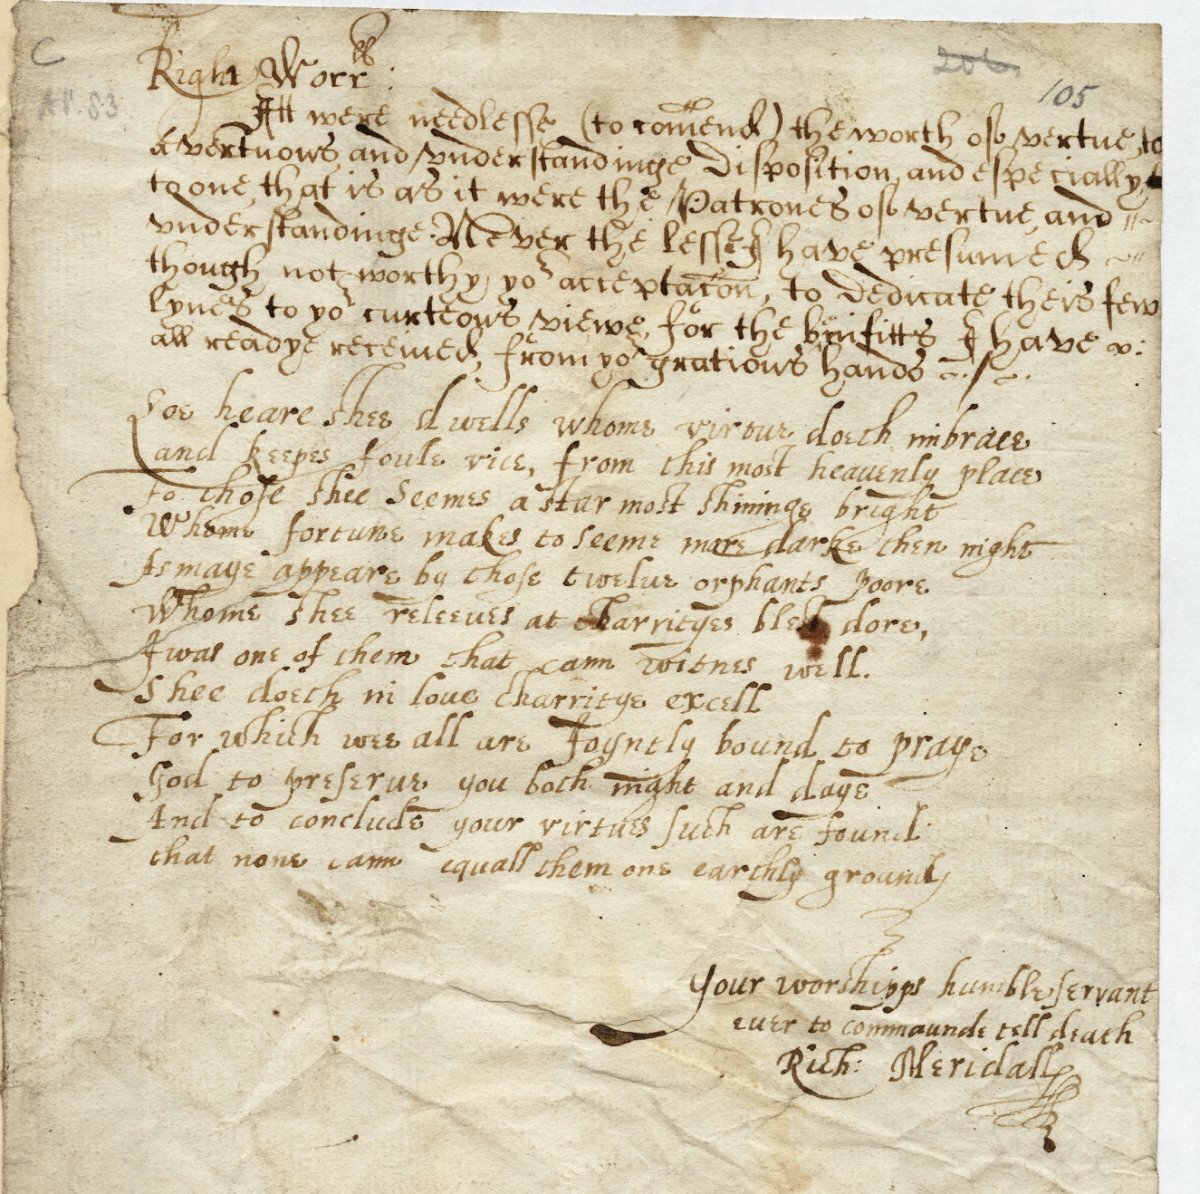 C
206
AP. 83
105
Right Worr:
Itt were needlesse (to comend) the worth of vertue, to
a vertuows and vnderstandinge disposition, and especially,
to one, that is as it were the Patrones of vertue, and
vnderstandinge: Never the lesse I have presumed
though not worthy, yor acceptacon, to dedicate theis few
lynes to yor curteows viewe, for the benifitts I have
all readye received, from yor gratiows hands
Loe heare shee dwells whome virtue doeth imbrace
and keepes foule vice, from this most heavenly place
to those shee seemes a star most shininge bright
Whome fortune makes to seeme more darke then night
As maye appeare by those twelve orphants poore
Whome shee releeves at Charrityes blest dore,
I was one of them that cann witnes well.
Shee doeth in love Charritye excell
For which wee all are Joyntly bound to praye
God to preserve you both night and daye
And to conclude your virtues such are found
that none cann equall them one earthly ground
Your worshipps humble servant
ever to commaunde tell death
Rich: Meridall